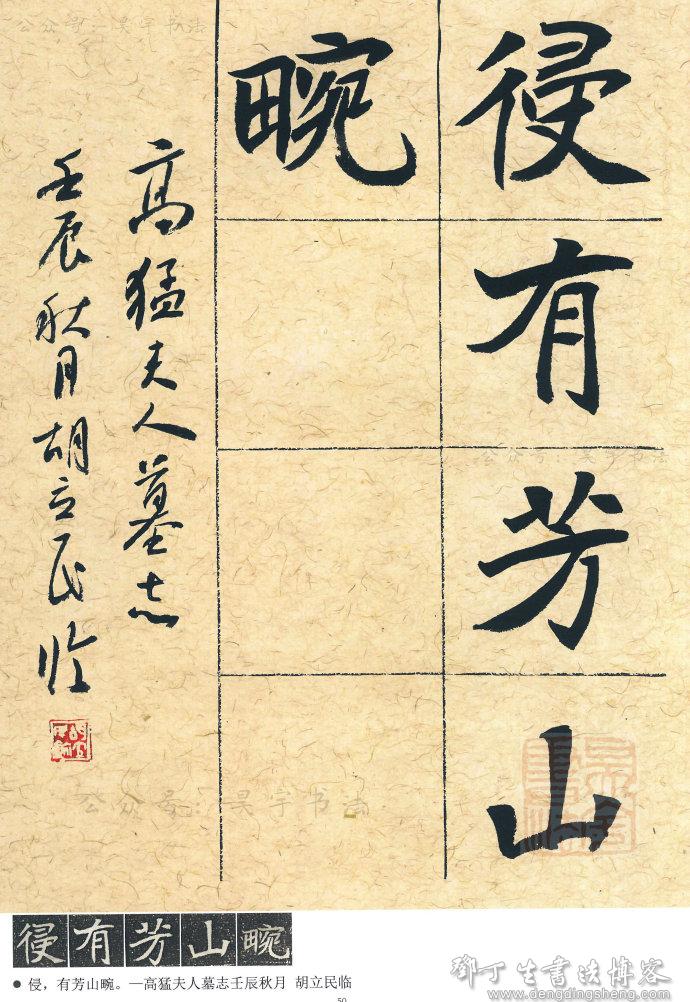 侵有芳山
畹
高猛夫人墓志
壬辰秋月胡立民临
公众号:昊宇书法
公众号:昊宇书法
公众号:昊宇书法
侵有芳山畹
● 侵，有芳山畹。—高猛夫人墓志壬辰秋月 胡立民临
50
邓丁生书法博客
www.dengdingsheng.com